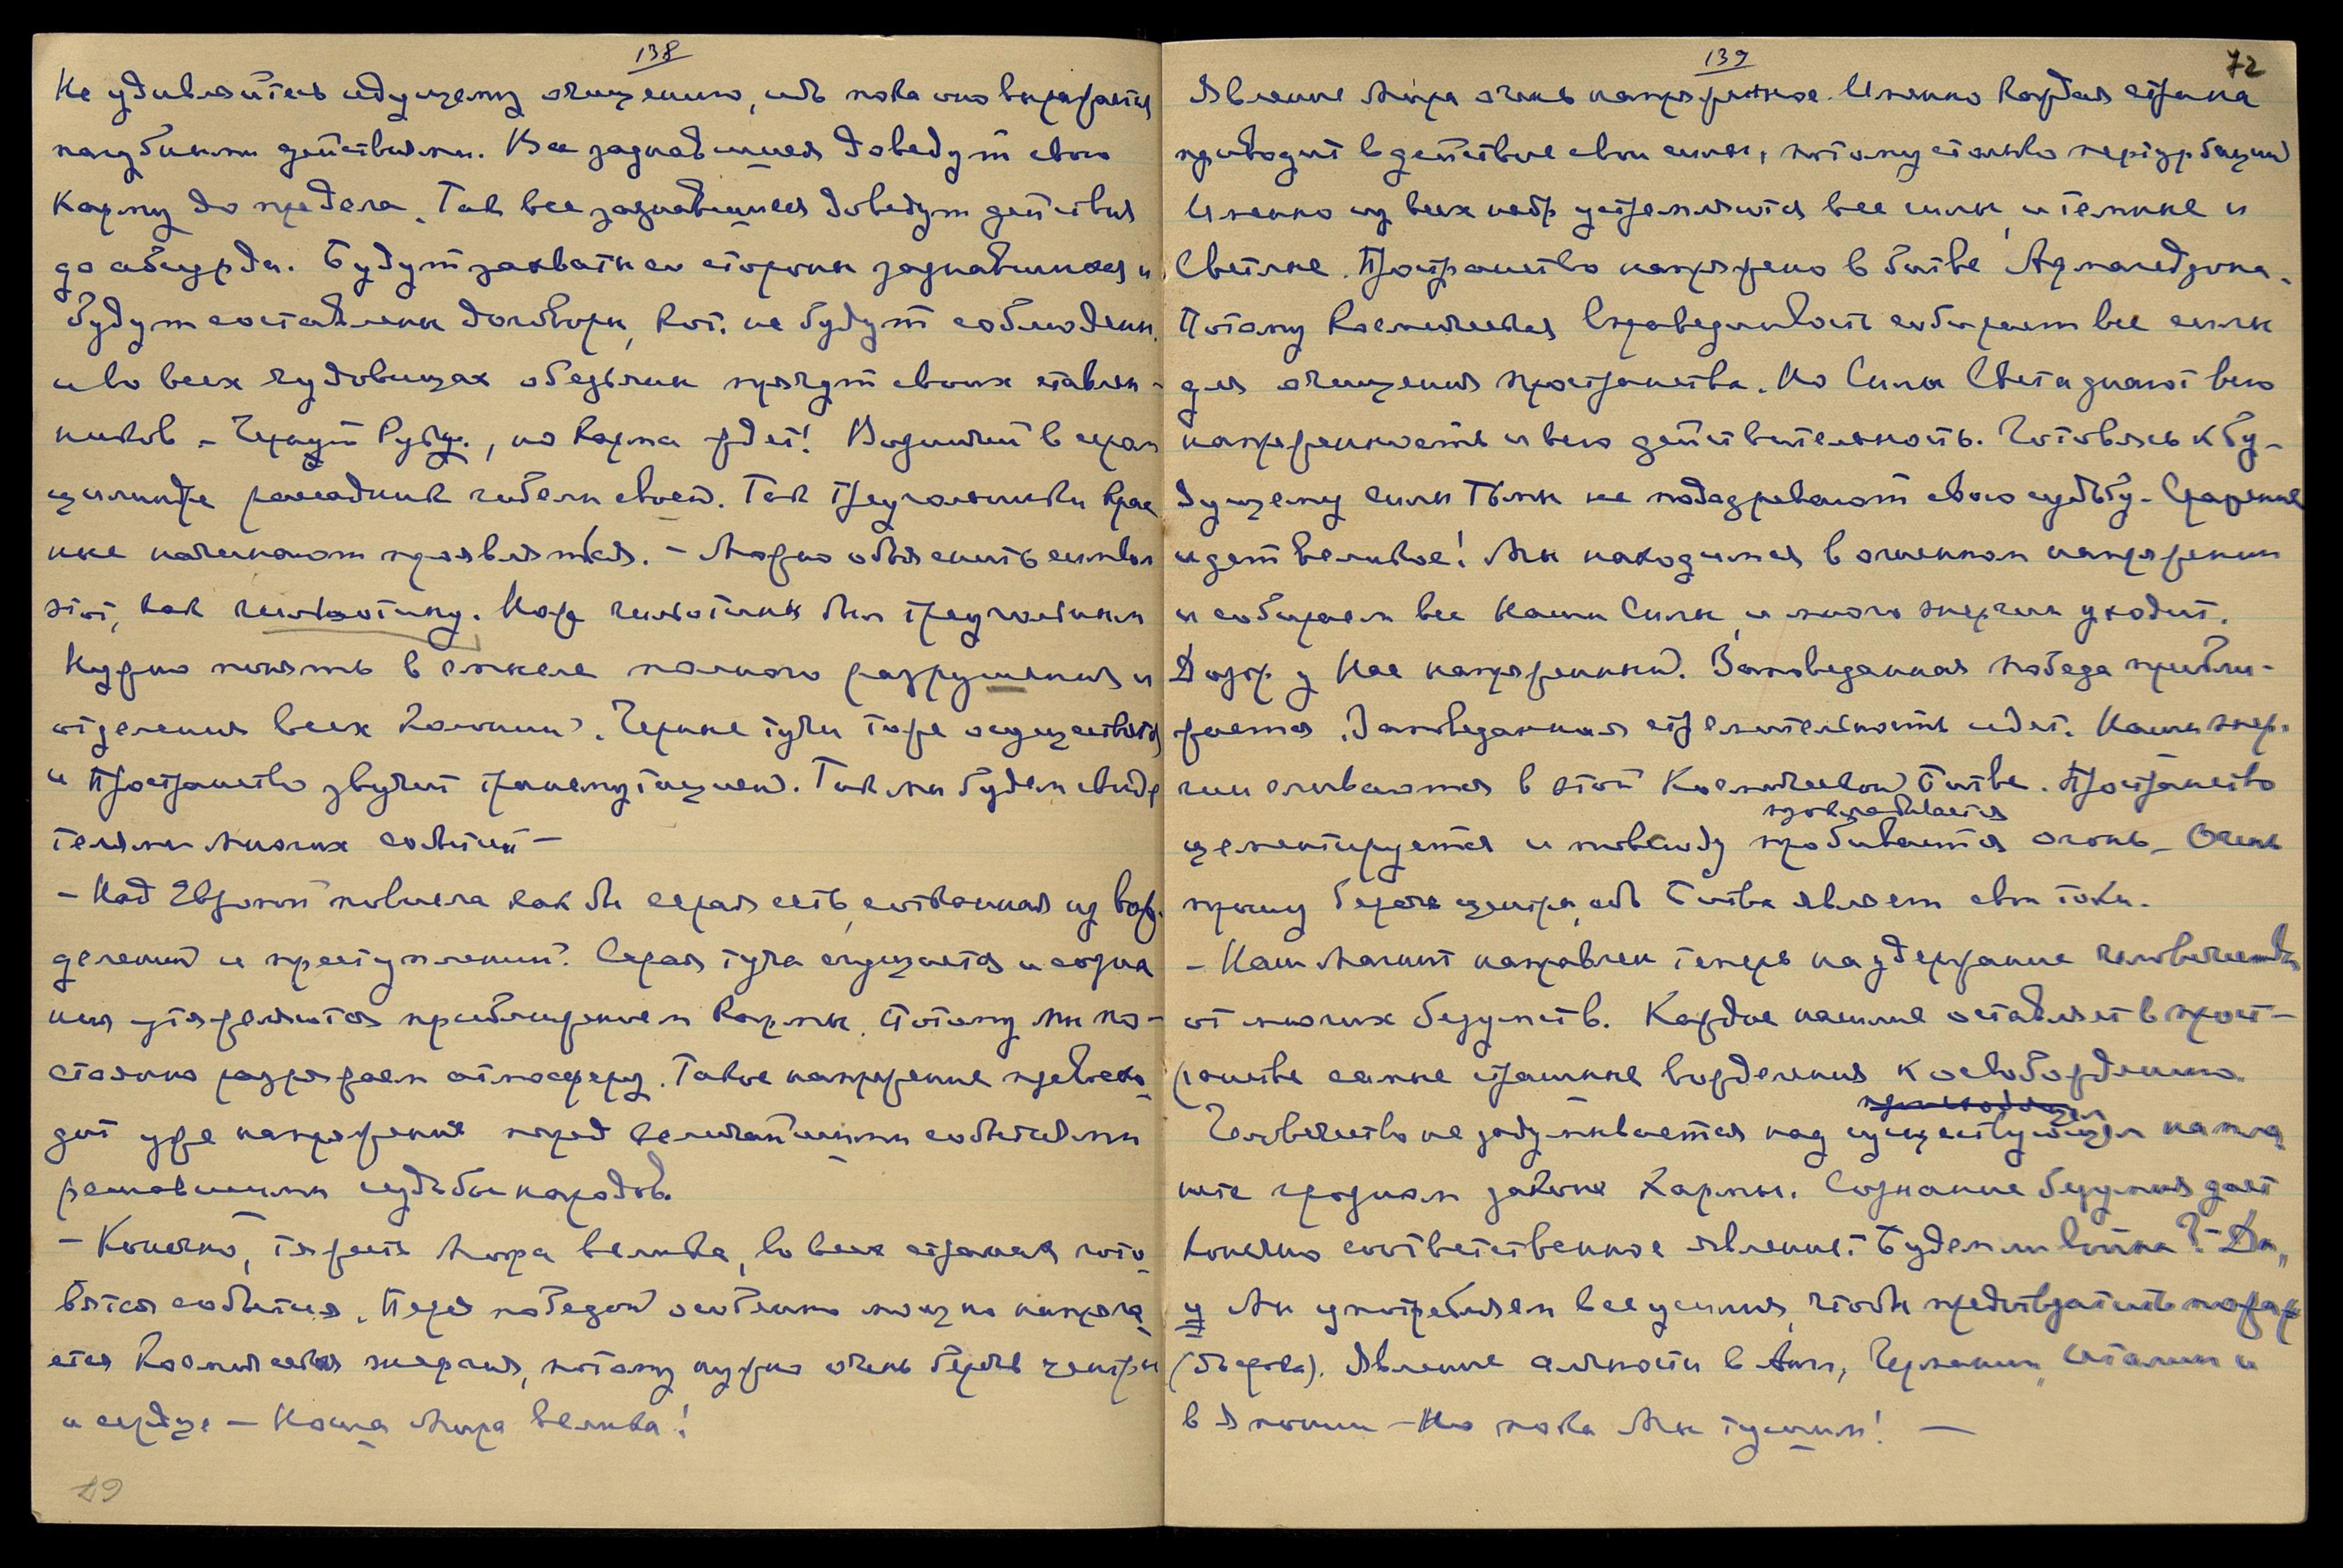 138
Не удивляйтесь идущему очищению, ибо пока оно выражается
пагубными действиями. Все зазнавшиеся доведут свою
Карму до предела. Так все зазнавшиеся доведут действия
до абсурда. Будут захваты со стороны зазнавшихся и
будут составлены договоры, кот. не будут соблюдены.
и во всех чудовищах обезьяны прячут своих ставлен-
ников – Герцит , но Карма ждет! Водимый в
цилиндре рассадник гибели своей. Так треугольники крас
ные начинают проявляться. – Можно объяснить символ
этот, как гильотину. Нож гильотины был треугольным
Нужно понять в смысле полного разрушения и
отделения всех Колоний. Черные тучи тоже осуществятся
и Пространство звучит трансмутацией. Так мы будем свиде
телями многих событий –
– Над Европой повисла как бы серая сеть, сотканная из вож.
делений и преступлений. Серая туча сгущается и созна
ния утяжеляются приближением Кармы. Потому Мы по-
стоянно разряжаем атмосферу. Такое напряжение превосхо
дит уже напряжение перед величайшими событиями
решавшими судьбы народов.
– Конечно, тяжесть Мира велика, во всех странах гото
вятся события. Перед победой особенно мощно напряга
ется Космическая энергия, потому нужно очень беречь центры
и сердце – Ноша Мира велика!
19
139
72
Явление Мира очень напряженное. Именно каждая страна
приводит в действие свои силы, потому столько пертурбаций
Именно из всех недр устремляются все силы, и темные и
Светлые. Пространство напряжено в битве Армагеддона.
Потому Космическая справедливость собирает все силы
для очищения пространства. Но Силы Света знают всю
напряженность и всю действительность. Готовясь к бу-
дущему силы Тьмы не подозревают свою судьбу. Сражение
идет великое! Мы находимся в огненном напряжении
и собираем все Наши Силы, и много энергии уходит.
Дозор у Нас напряженный. Заповеданная победа прибли-
жается. Заповеданная стремительность идет. Наши энер-
гии сливаются в этой Космической Битве. Пространство
прокладывается
цементируется и повсюду пробивается огонь. Очень
прошу беречь центры, ибо Битва являет свои токи.
– Наш Магнит направлен теперь на удержание человечества
от многих безумств. Каждое насилие оставляет в прост-
ранстве самые страшные вожделения к освобождению.
происходящем
Человечество не задумывается над существующем на пла
нете грозном законе Кармы. Сознание безумия дает
конечно соответственное явление. Будет ли война? –
у Мы употребляем все усилия, чтобы предотвратить пожар
. Явление алчности в Анг., Германии, Италии и
в Японии – Но пока Мы тушим! –